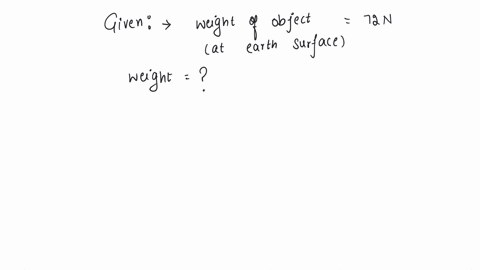 Given: → weight of object = 72 N
(at earth surface)
weight = ?